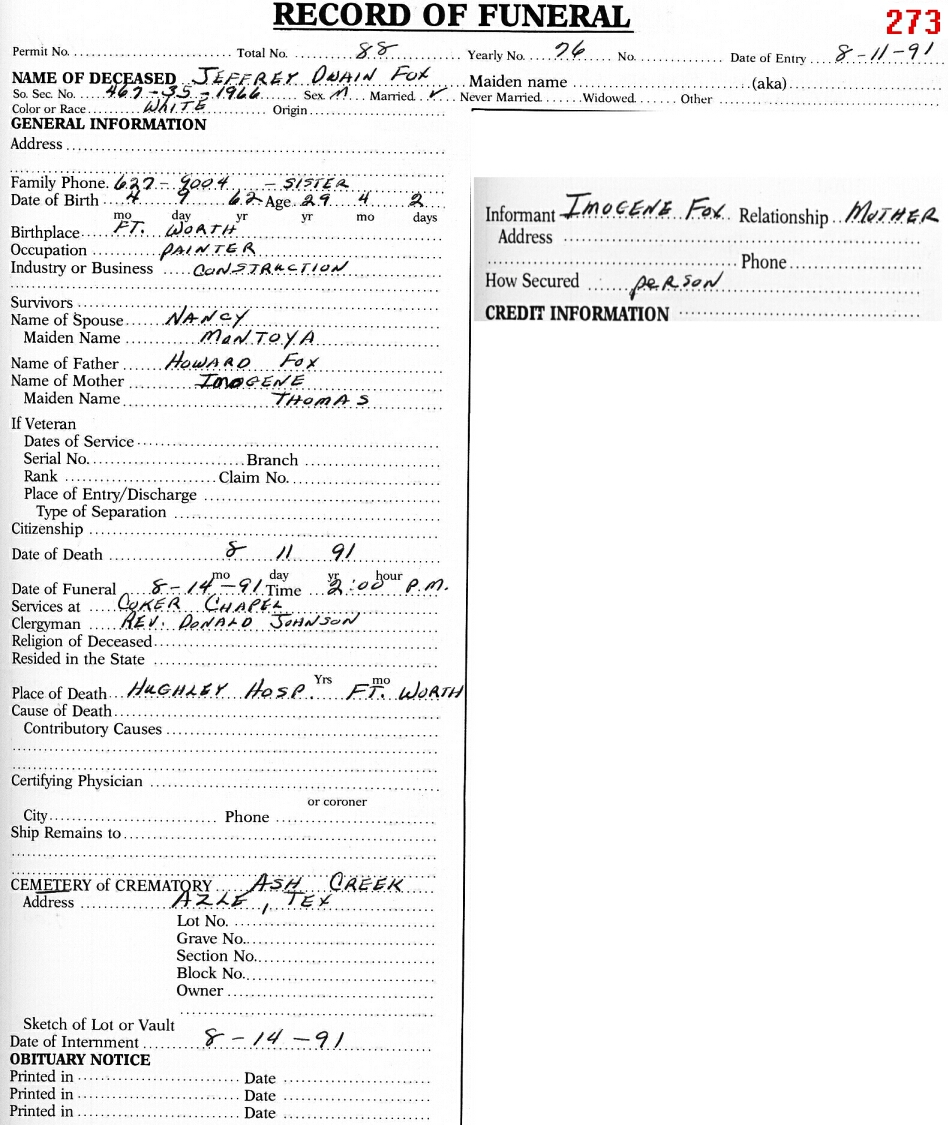 RECORD OF FUNERAL
273
Permit No. Total No. 88 Yearly No. 76 No. Date of Entry 8-11-91
NAME OF DECEASED JEFFREY DWAIN FOX Maiden name (aka)
So. Sec. No. 467-35-1966 Sex M Married ✓ Never Married Widowed Other
Color or Race WHITE Origin
GENERAL INFORMATION
Address
Family Phone. 627-9004 - SISTER
Date of Birth 4 9 62 Age 29 4 2
mo day yr yr mo days
Birthplace FT. WORTH
Occupation PAINTER
Industry or Business CONSTRUCTION
Survivors
Name of Spouse NANCY
Maiden Name MONTOYA
Name of Father HOWARD FOX
Name of Mother IMOGENE
Maiden Name THOMAS
If Veteran
Dates of Service
Serial No. Branch
Rank Claim No.
Place of Entry/Discharge
Type of Separation
Citizenship
Date of Death 8 11 91
mo day yr hour
Date of Funeral 8-14-91 Time 2:00 P.M.
Services at COKER CHAPEL
Clergyman REV. DONALD JOHNSON
Religion of Deceased
Resided in the State
Yrs mo
Place of Death HUGHLEY HOSP. FT. WORTH
Cause of Death
Contributory Causes
Certifying Physician
or coroner
City Phone
Ship Remains to
CEMETERY of CREMATORY ASH CREEK
Address AZLE, TEX
Lot No.
Grave No.
Section No.
Block No.
Owner
Sketch of Lot or Vault
Date of Internment 8-14-91
OBITUARY NOTICE
Printed in Date
Printed in Date
Printed in Date
Informant IMOGENE FOX Relationship MOTHER
Address
Phone
How Secured PERSON
CREDIT INFORMATION